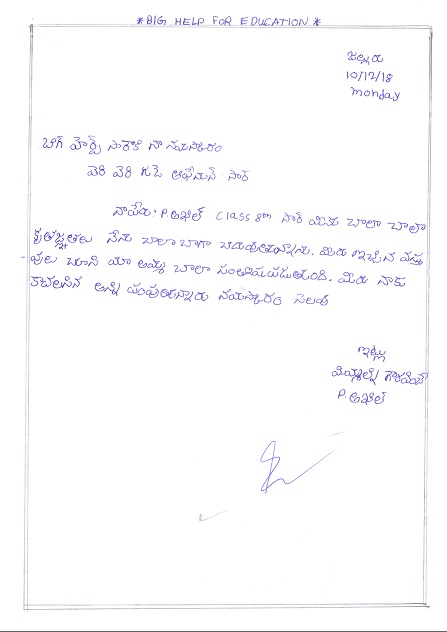 * BIG HELP FOR EDUCATION *
జల్లూరు
10/12/18
monday
బిగ్ హెల్ప్ సార్కి నా నమస్కారం
వెరి వెరి గుడ్ ఆఫ్టేనున్ సార్
నాపేరు: P. అఖిల్ class 8th సార్ మీకు చాలా చాలా
కృతజ్ఞతలు నేను చాలా బాగా చదువుతున్నాను. మీరు ఇచ్చిన వస్తు
వులు చూసి మా అమ్మ చాలా సంతోషపడుతుంది. మీరు నాకు
కావలసిన అన్ని పంపుతున్నారు నమస్కారం సెలవు
ఇట్లు
P. అఖిల్